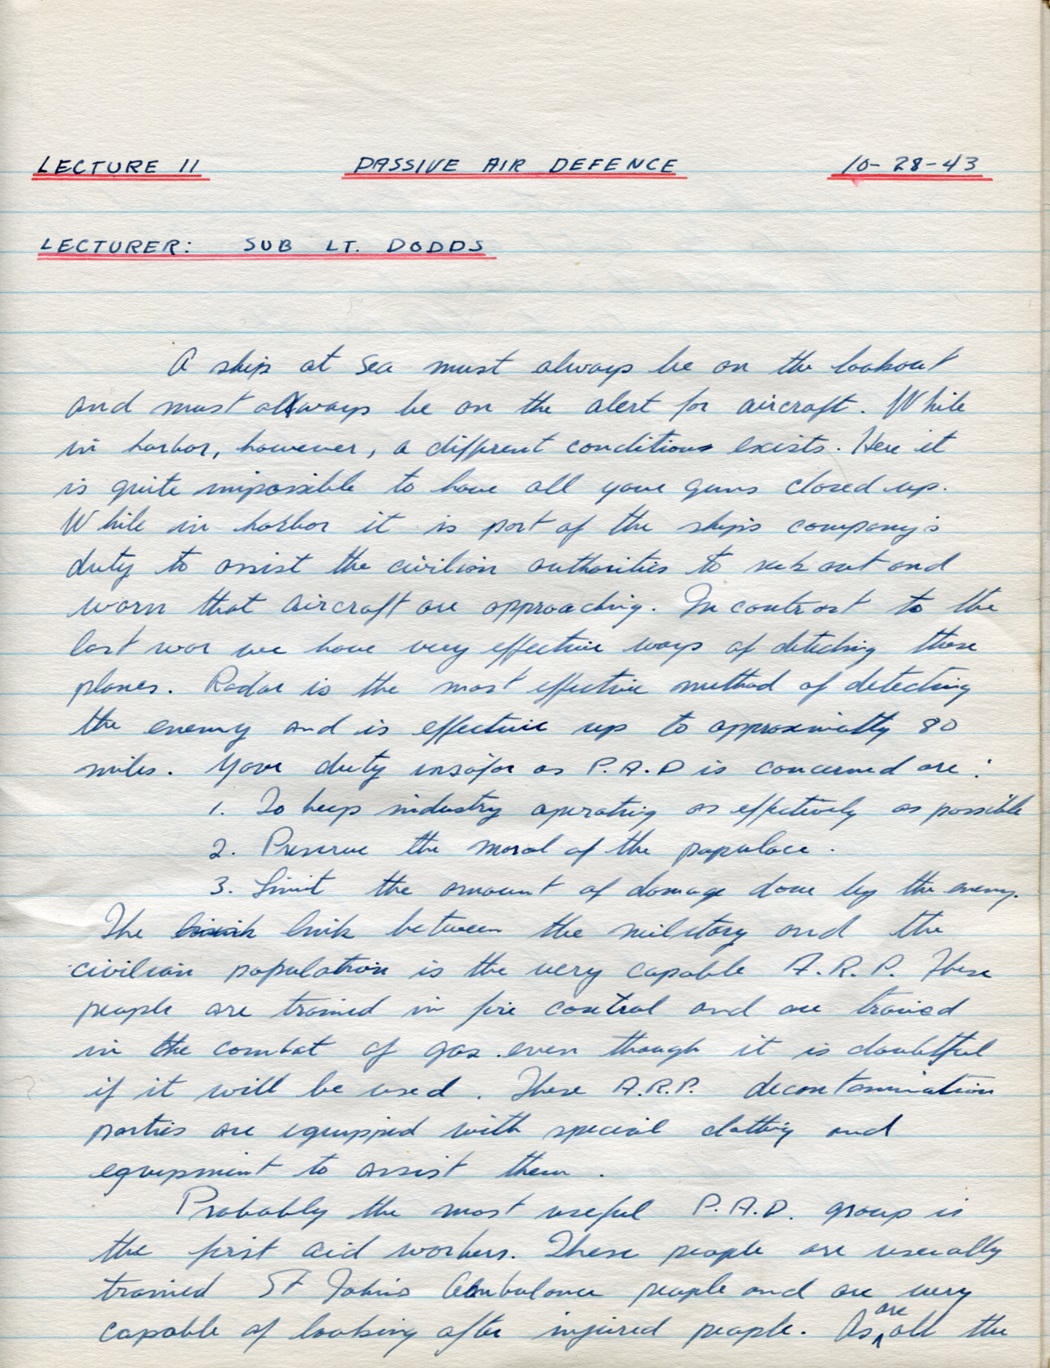 LECTURE 11 PASSIVE AIR DEFENCE 10-28-43
LECTURER: SUB LT. DODDS
A ship at Sea must always be on the lookout
and must always be on the alert for aircraft. While
in harbor, however, a different conditions exists. Here it
is quite impossible to have all your guns closed up.
While in harbor it is part of the ships company's
duty to assist the civilian authorities to seek out and
warn that aircraft are approaching. In contrast to the
last war we have very effective ways of detecting these
planes. Radar is the most effective method of detecting
the enemy and is effective up to approximatly 80
miles. Your duty insofar as P.A.D is concerned are:
1. To keep industry operating as effectively as possible
2. Preserve the moral of the populace.
3. Limit the amount of damage done by the enemy.
The link between the military and the
civilian population is the very capable A.R.P. These
people are trained in fire control and are trained
in the combat of gas even though it is doubtful
if it will be used. These A.R.P. decontamination
parties are equipped with special clothing and
equipment to assist them.
Probably the most useful P.A.D. group is
the first aid workers. These people are usually
trained St John's Ambulance people and are very
capable of looking after injured people. As are all the